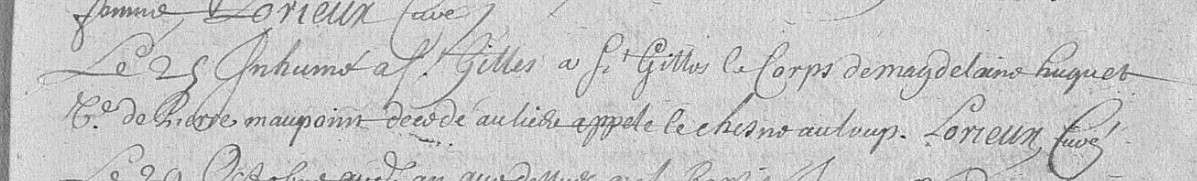 femme Lorieux Curé
Le 25 Inhumé a St. Gilles a St Gilles le Corps de magdelaine huguet
Ve. de Pierre maupoint decedé au lieu appelé le chesne au loup. Lorieux Curé
Le 29 Octobre aud. an que dessus